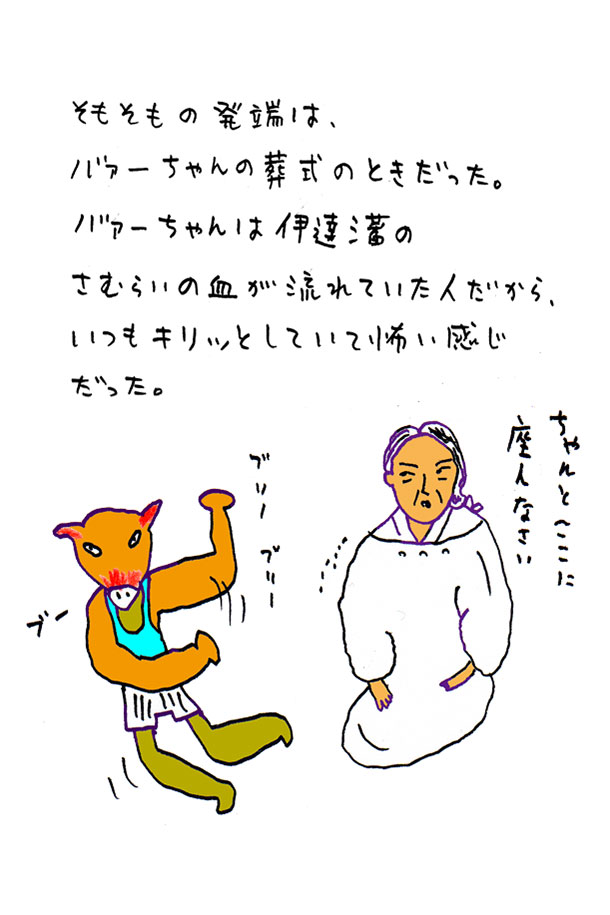 そもそもの発端は、
バァーちゃんの葬式のときだった。
バァーちゃんは伊達藩の
さむらいの血が流れていた人だから、
いつもキリッとしていて怖い感じ
だった。
ちゃんとここに
座んなさい
ブリー
ブリー
ブー